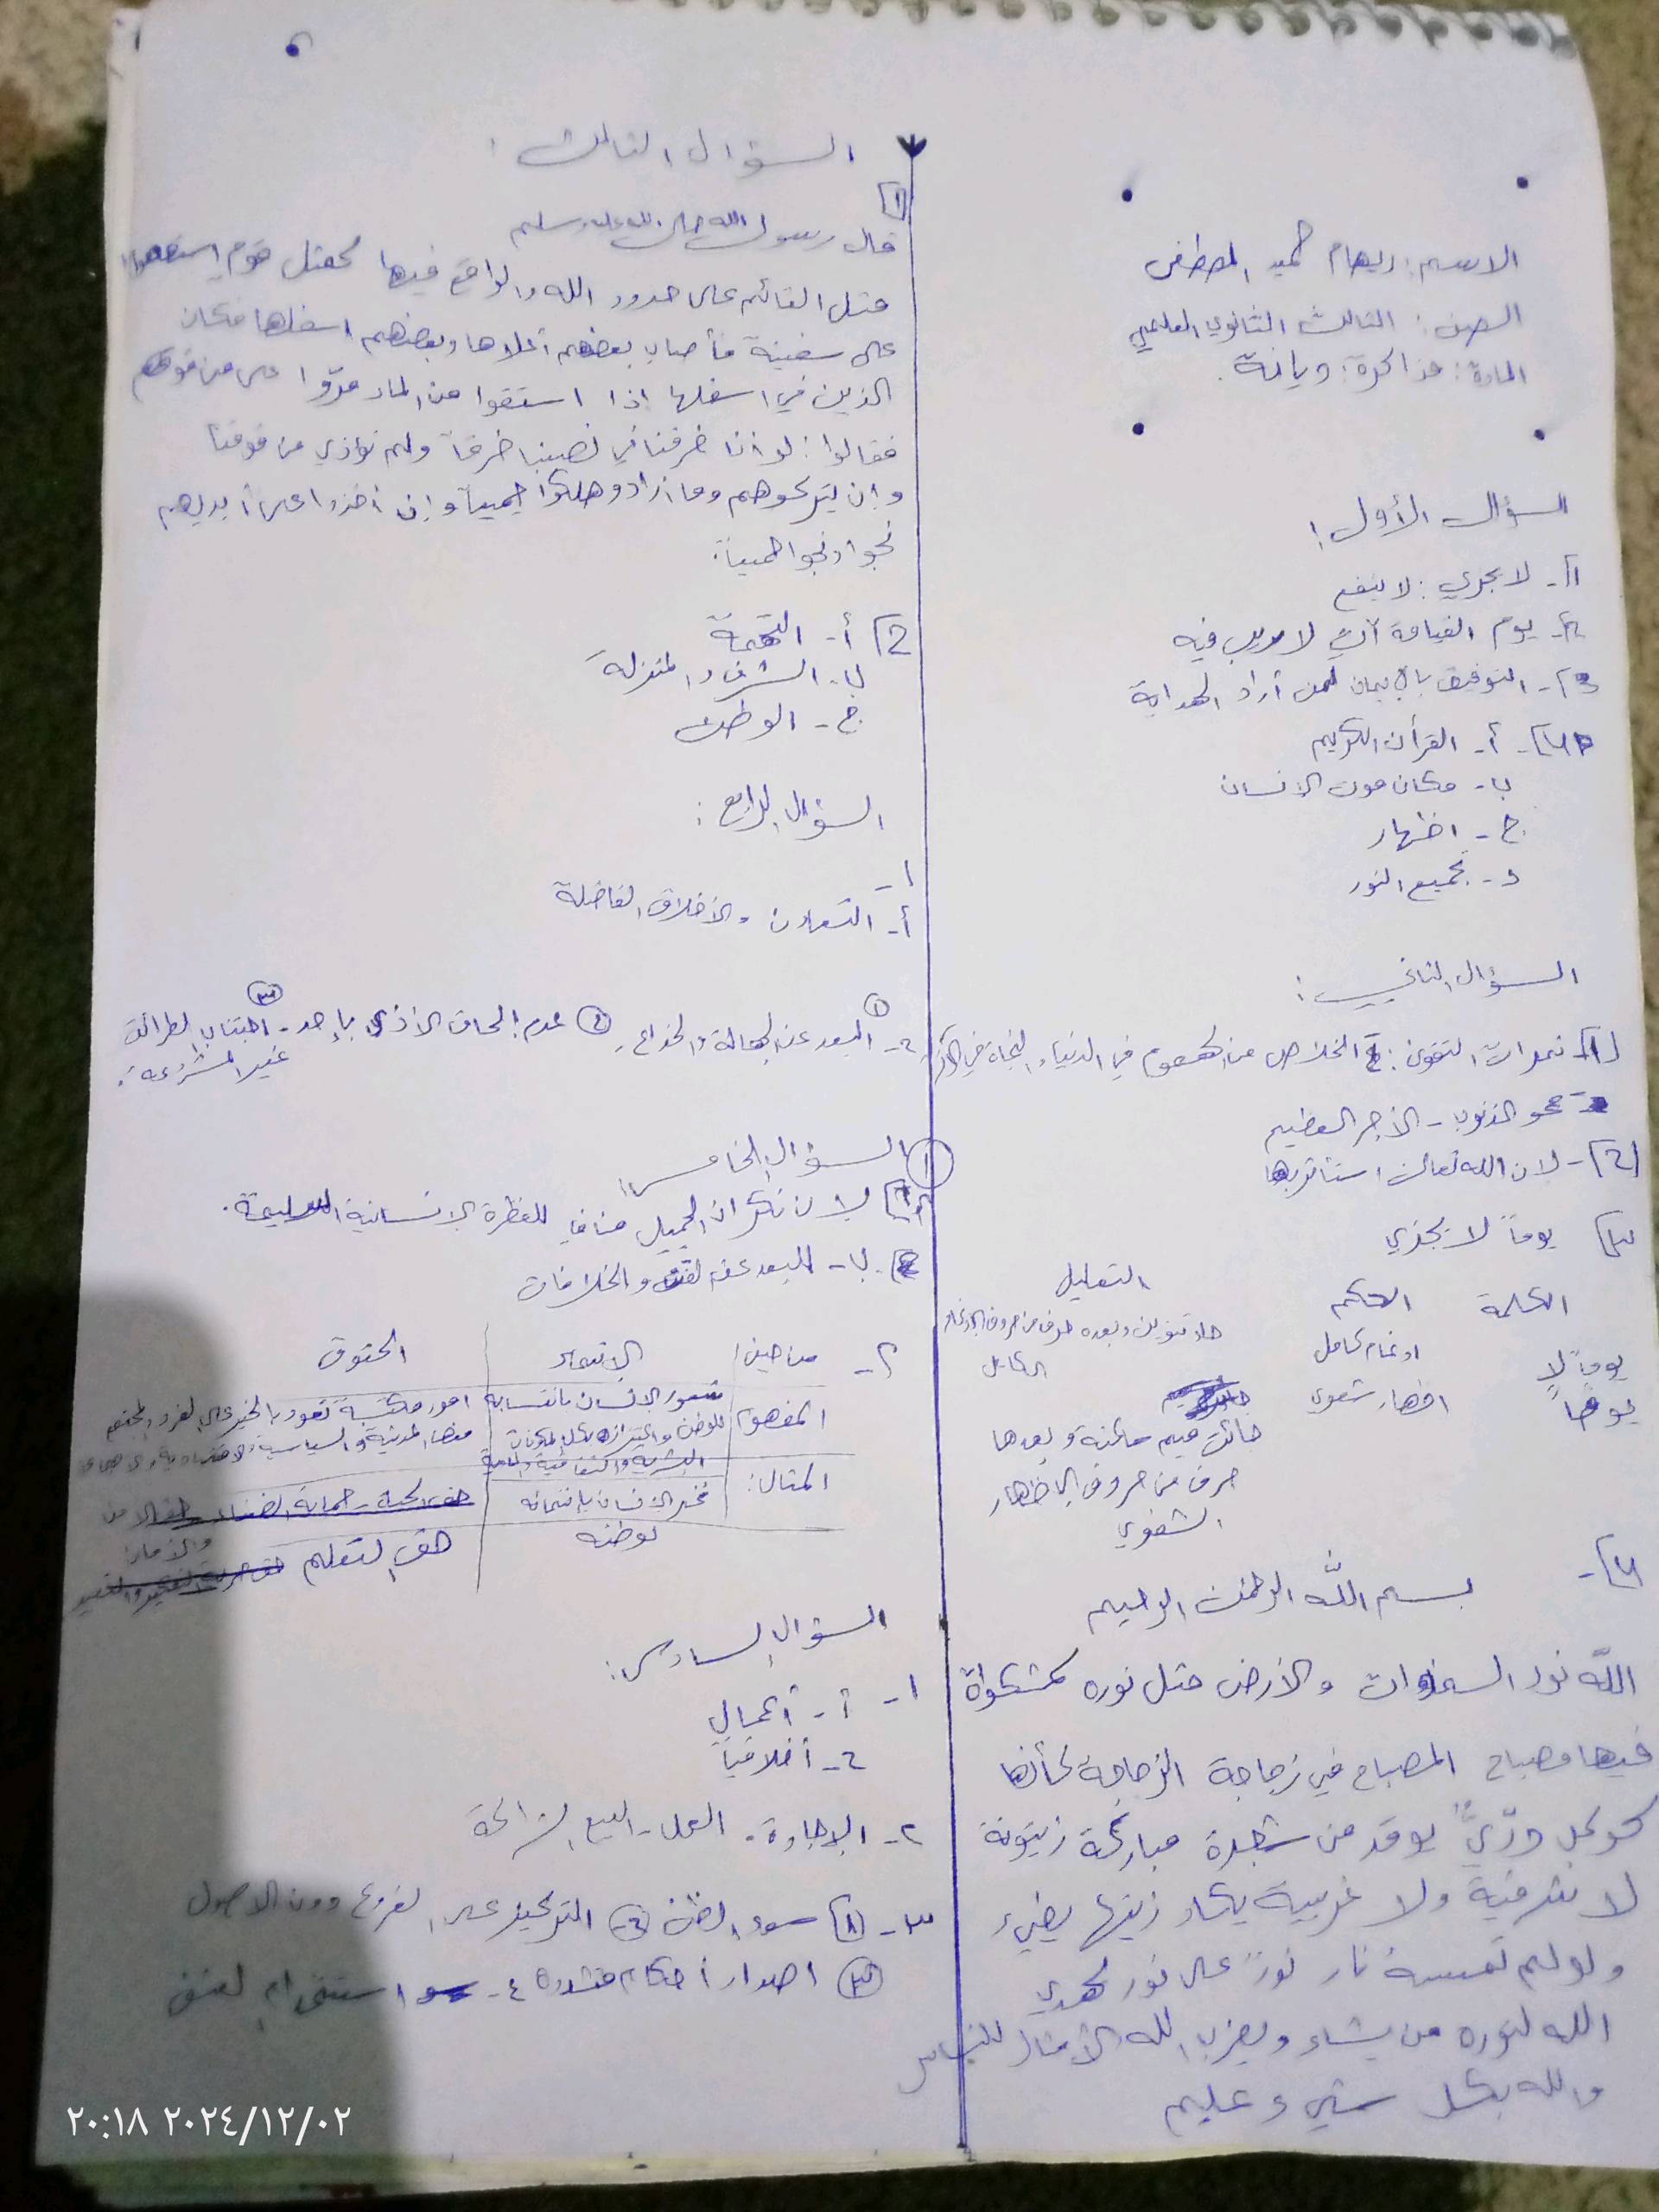 الاسم: ريهام حميد المصطفى
الصف: الثالث الثانوي العلمي
المادة: مذاكرة: ديانة.
السؤال الأول:
1- لا يجزي: لا ينفع
2- يوم القيامة آتٍ لا ريب فيه
3- التوفيق بالإيمان لمن أراد الهداية
4- أ- القرأن الكريم
ب- مكان موت الإنسان
ج- اظهار
د- جميع النور
السؤال الثاني:
1- ثمرات التقوى: الخلاص من الهموم في الدنيا والنجاة في
- محو الذنوب - الأجر العظيم
2- لان الله تعالى استأثر بها
3 يوماً لا يجزي
الكلمة الحكم التعليل
يوماً لا ادغام كامل جاء تنوين وبعده حرف من حروف الإدغام الكامل
يوماً اظهار شفوي
جائت ميم ساكنة وبعدها
حرف من حروف الإظهار
الشفوي
4-
بسم الله الرحمن الرحيم
الله نور السماوات والأرض مثل نوره كمشكواة
فيها مصباح المصباح في زجاجة الزجاجة كأنها
كوكب درّيٌّ يوقد من شجرة مباركة زيتونة
لا شرقية ولا غربية يكاد زيتها يضيء
ولو لم تمسسه نار نورٌ على نور يهدي
الله لنوره من يشاء ويضرب الله الأمثال للناس
والله بكل شيء عليم
السؤال الثالث:
1
قال رسول الله صلى الله عليه وسلم
مثل القائم على حدود الله والواقع فيها كمثل قوم استهموا
على سفينة فأصاب بعضهم أعلاها وبعضهم اسفلها فكان
الذين في اسفلها إذا استقوا من الماء مرّوا على من فوقهم
فقالوا: لو أنا خرقنا في نصيبنا خرقاً ولم نؤذي من فوقنا
وإن يتركوهم وما أرادو هلكوا جميعاً وإن أخذوا على أيديهم
نجوا ونجوا جميعاً.
2 أ- التهمة
ب- الشرف والمنزلة
ج- الوطن
السؤال الرابع:
1-
أ- التعاون والأخلاق الفاضلة
2- 1 البعد عن الجهالة والخداع. 2 عدم إلحاق الأذى بإحد- 3 اجتناب الطرائق
غير المشرعة.
السؤال الخامس:
1 1 لإن نكران الجميل منافي للفطرة الإنسانية السليمة.
ب- للبعد عن الفتن والخلافات
2- من حيث الإنتماء الحقوق
المفهوم شعور الإنسان بانتسابه
للوطن واعتزازه بكل المكونات
البشرية والثقافية والمادية
امور مكتسبة تعود بالخير على الفرد والمجتمع
منها المدنية والسياسية
المثال: فخر الإنسان بإنتمائه
لوطنه
حق التعليم
السؤال السادس:
1- أ- أعمال
2- أخلاقياً
2- الإجارة. العمل- البيع الرابحة
3- 1 سوء الظن 2 التركيز على الفروع دون الاصول
3 اصدار أحكام متشددة 4- استخدام العنف
٢٠:١٨ ٢٠٢٤/١٢/٠٢